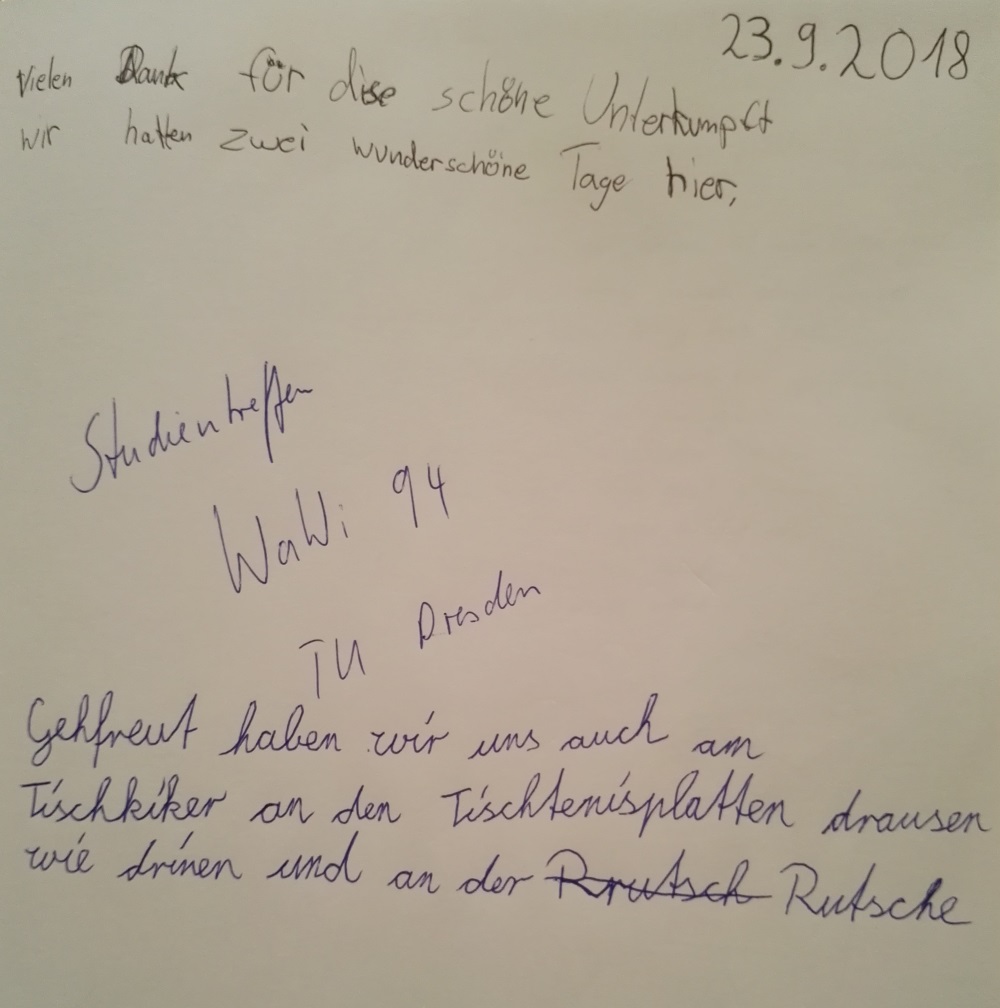 23.9.2018
Vielen Dank für diese schöne Unterkumpft
wir hatten zwei wunderschöne Tage hier,
Studientreffen
WaWi 94
TU Dresden
Gehfreut haben wir uns auch am
Tischkiker an den Tischtenisplatten drausen
wie drinen und an der Rrutsch Rutsche